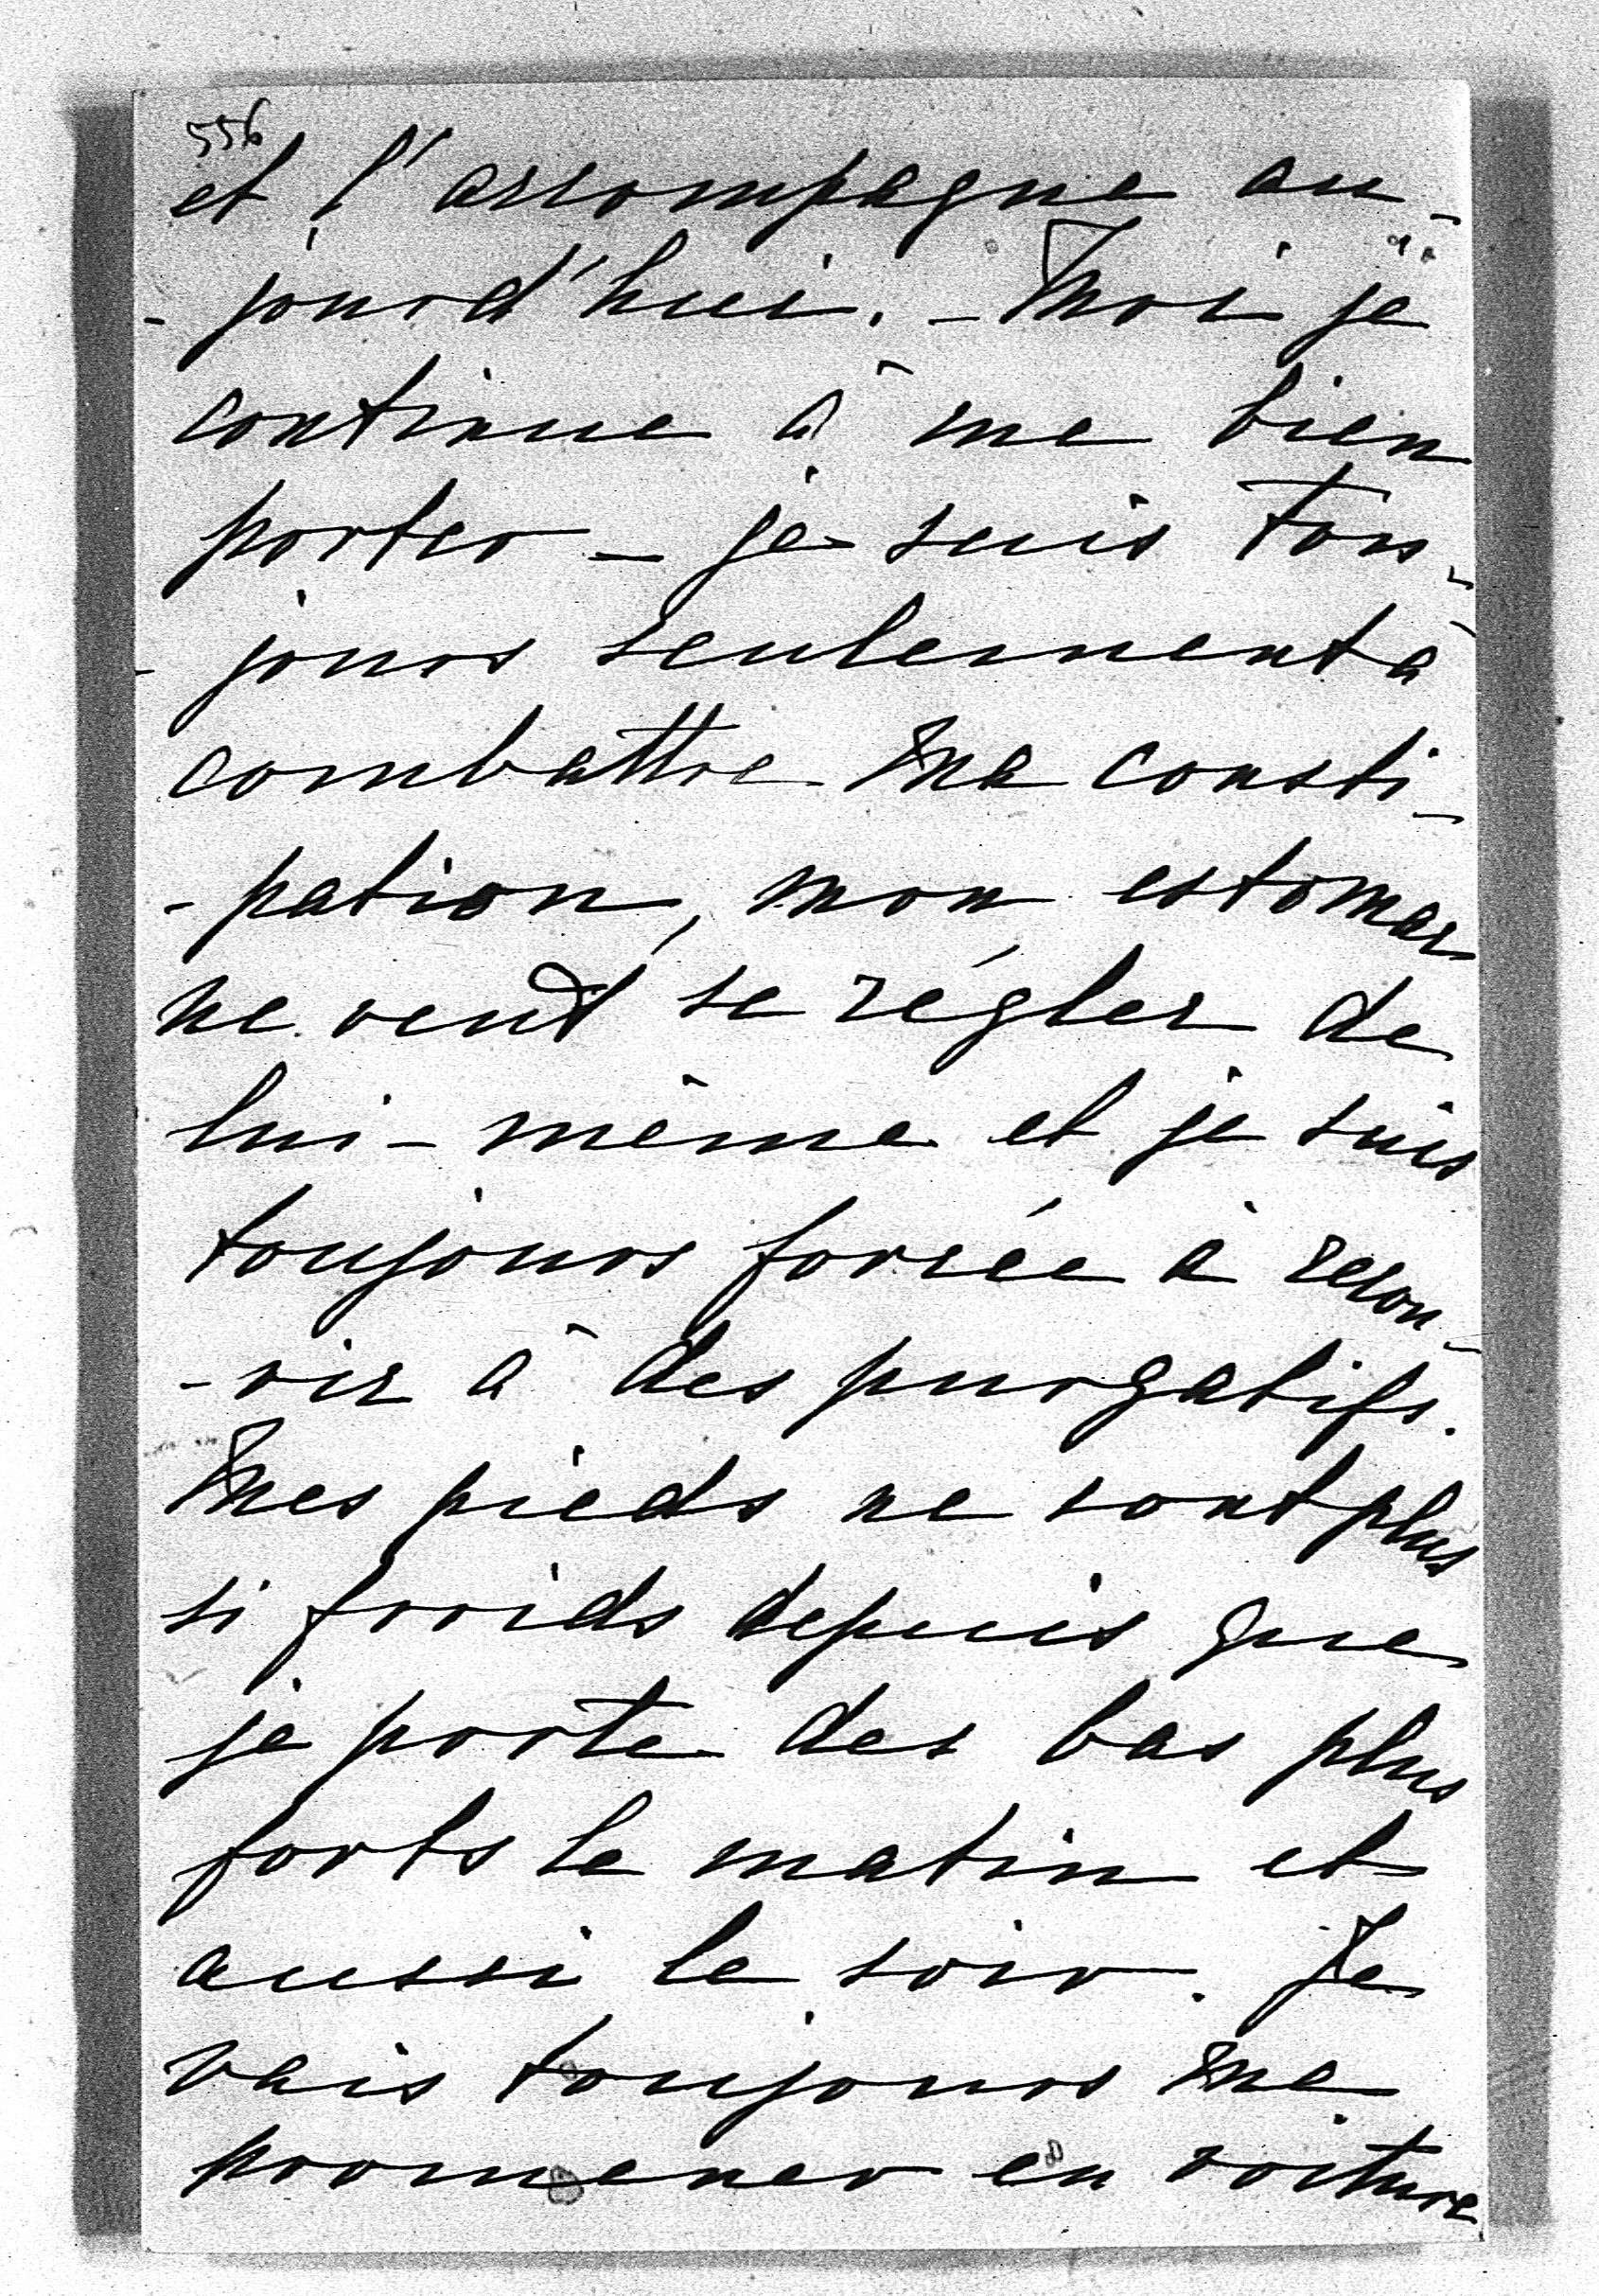 556
et l'accompagne au-
-jourd'hui. - Moi je
continue à me bien
porter - je suis tou-
-jours seulement à
combattre ma consti-
-pation, mon estomac
ne veut se régler de
lui-même et je suis
toujours forcée à recou-
-rir à des purgatifs.
Mes pieds ne sont plus
si froids depuis que
je porte des bas plus
forts le matin et
aussi le soir. Je
vais toujours me
promener en voiture